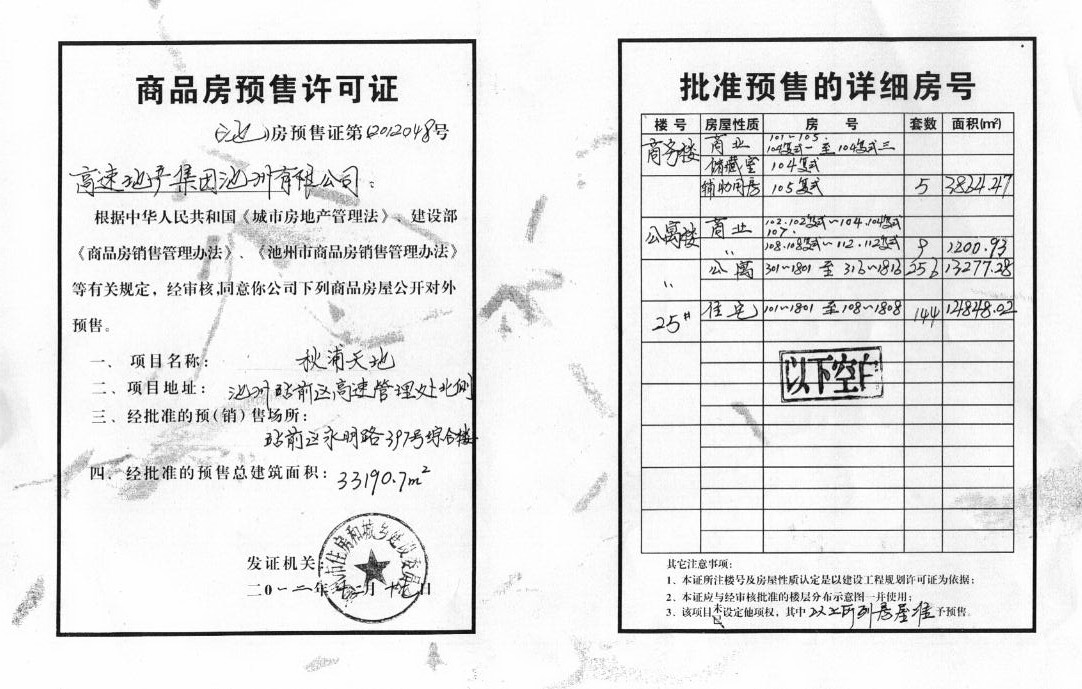 商品房预售许可证
(池)房预售证第(2012048号
高速地产集团池州有限公司:
根据中华人民共和国《城市房地产管理法》、建设部
《商品房销售管理办法》、《池州市商品房销售管理办法》
等有关规定,经审核,同意你公司下列商品房屋公开对外
预售。
一、项目名称: 秋浦天地
二、项目地址: 池州站前区高速管理处北侧
三、经批准的预(销)售场所:
站前区永明路397号综合楼
四、经批准的预售总建筑面积: 33190.7m²
市住房和城乡建设委员会
发证机关:
二0一二年十二月十 日
批准预售的详细房号
楼号 房屋性质 房号 套数 面积(m²)
商务楼 商业 101~105.
104复式一至104复式三
储藏室 104复式
辅助用房 105复式 5 3864.47
公寓楼 商业 102.102复式~104.104复式
107.
〃 108.108复式~112.112复式 9 1200.93
〃 公寓 301~1801 至 316~1816 256 13277.28
25# 住宅 101~1801 至 108~1808 144 14848.02
以下空白
其它注意事项:
1、本证所注楼号及房屋性质认定是以建设工程规划许可证为依据;
2、本证应与经审核批准的楼层分布示意图一并使用;
3、该项目未设定他项权,其中以上所列房屋准予预售。